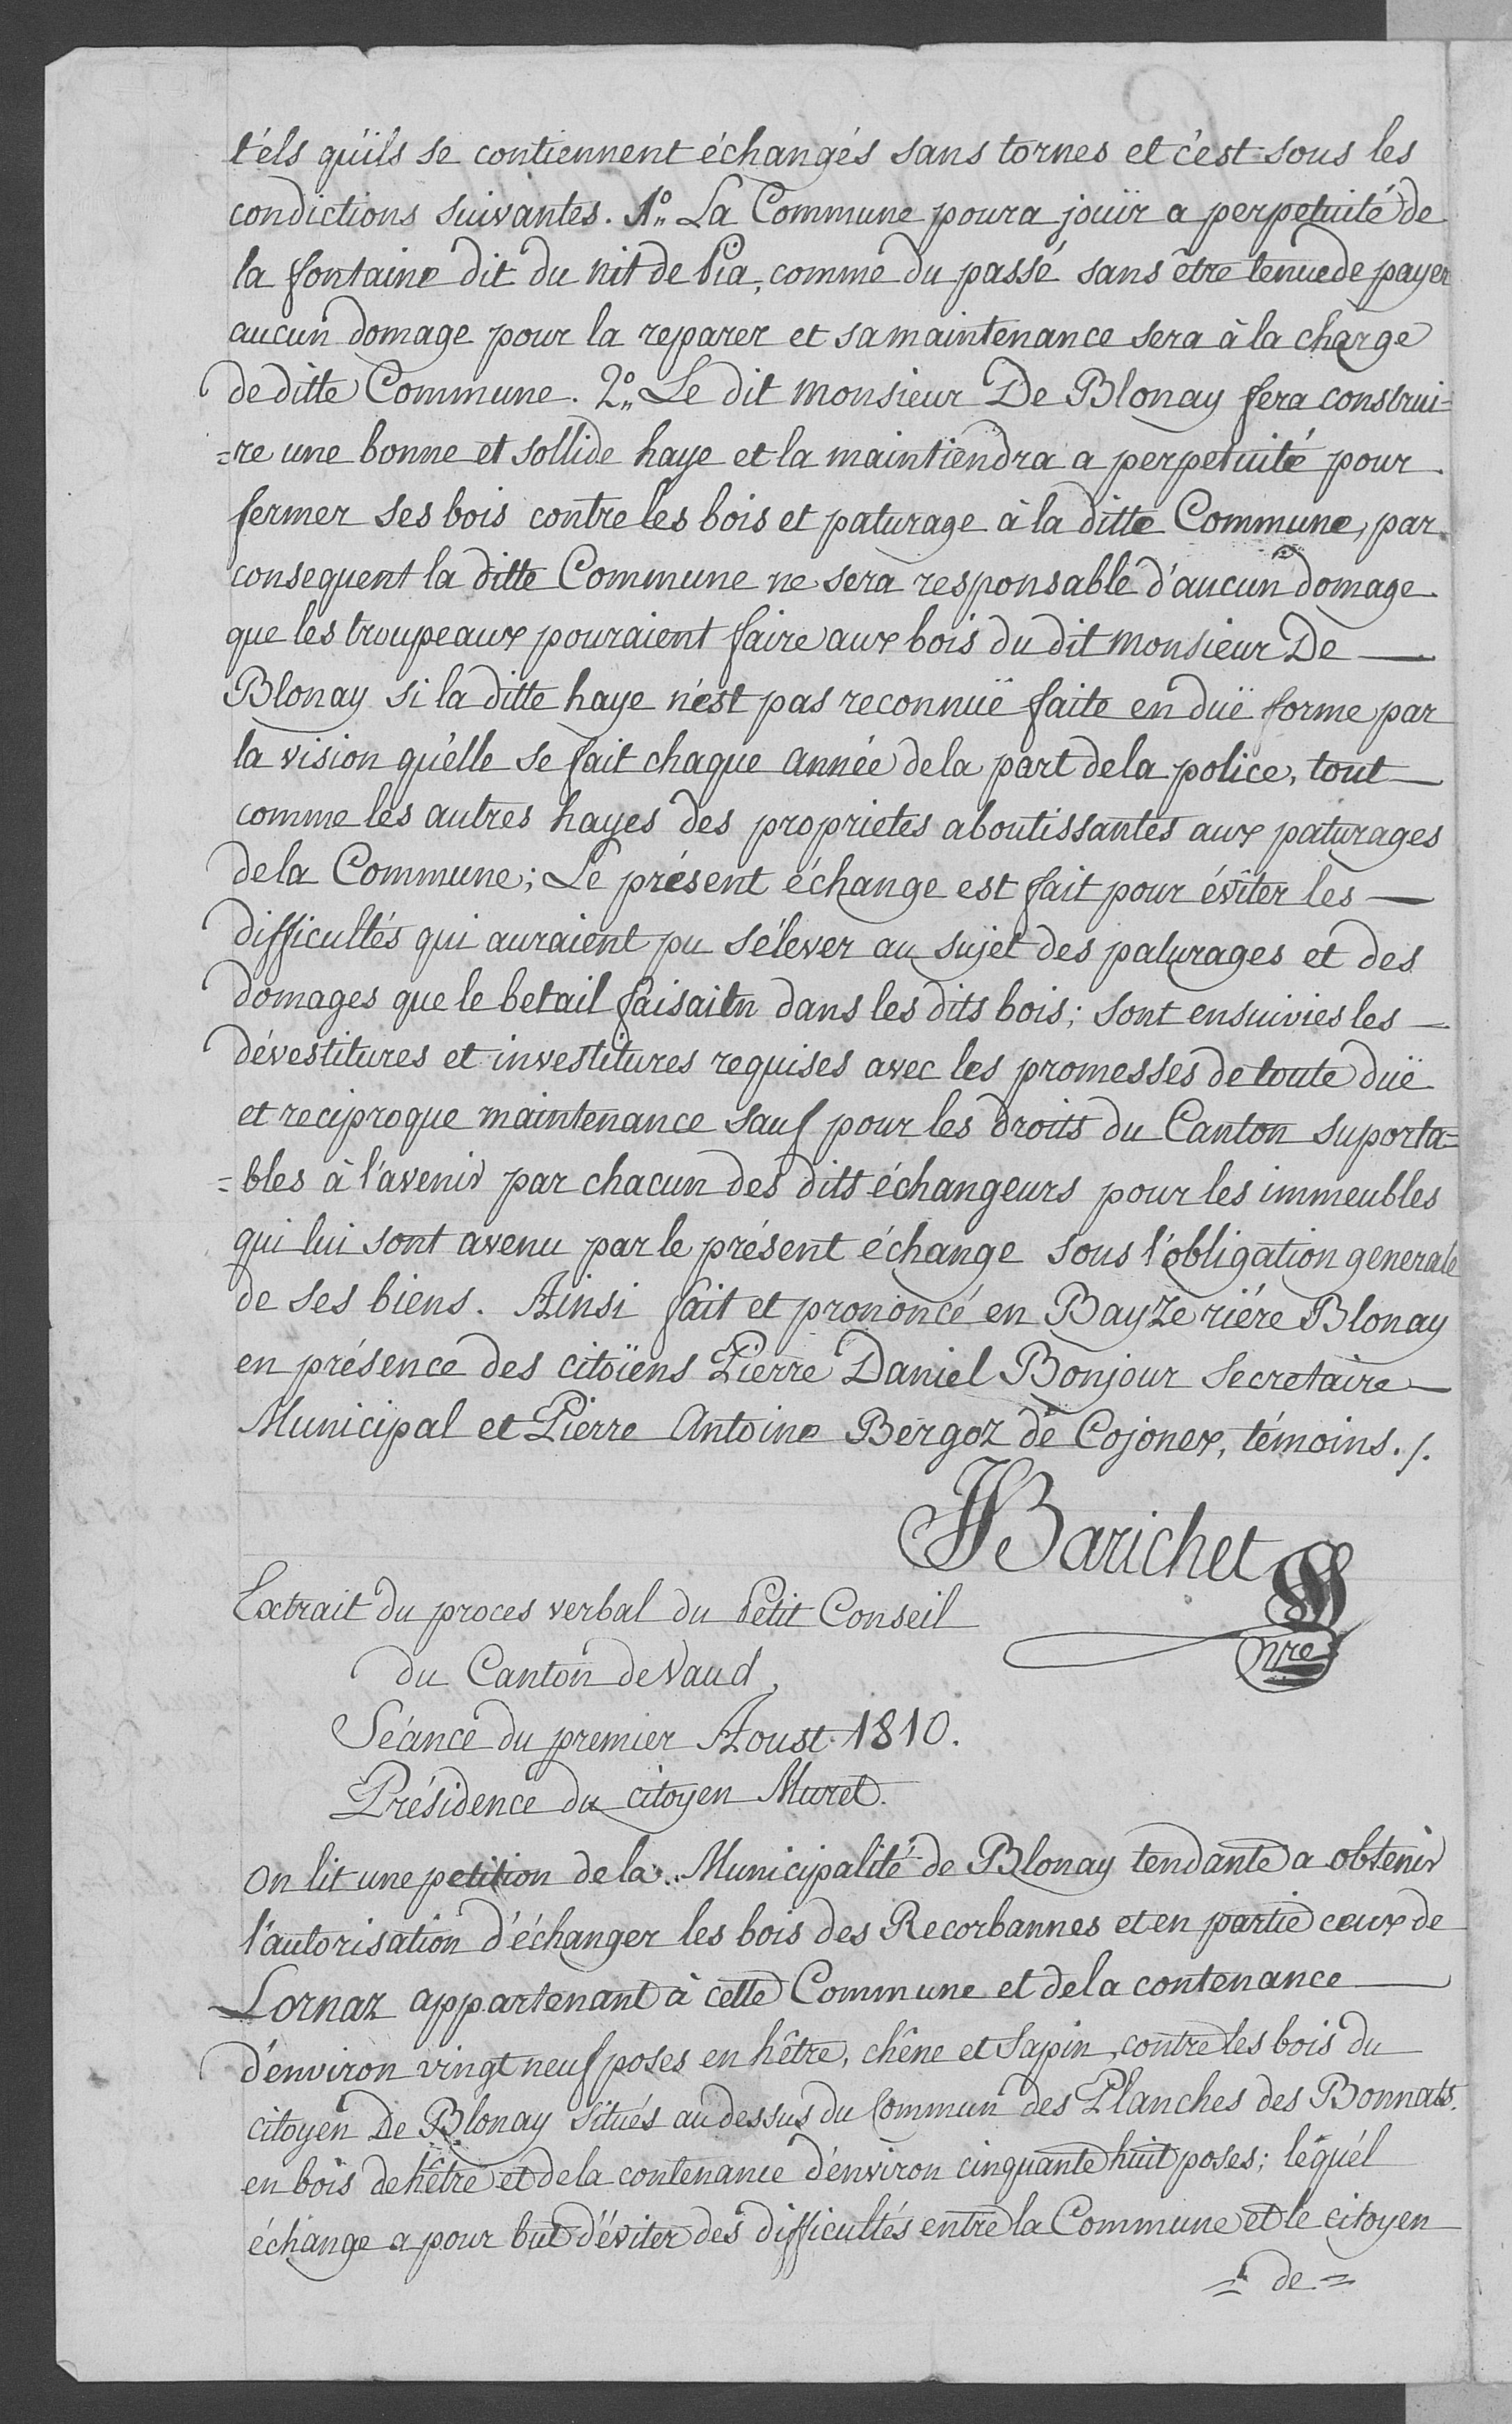 t'éls qu'ils se contiennent échangés sans tornes et c'est sous les
condictions suivantes. 1.° La Commune poura jouïr a perpetuité de
la fontaine dit du nit de Pia, comme du passé sans être tenue de payer
aucun domage pour la reparer et sa maintenance sera à la charge
de ditte Commune. 2.° Le dit monsieur De Blonay fera construi=
=re une bonne et sollide haye et la maintiendra a perpetuité pour
fermer ses bois contre les bois et paturage à la ditte Commune, par
consequent la ditte Commune ne sera responsable d'aucun domage
que les troupeaux pouraient faire aux bois du dit monsieur De —
Blonay si la ditte haye n'est pas reconnuë faite en duë forme par
la vision qu'elle se fait chaque année de la part de la police, tout —
comme les autres hayes des proprietes aboutissantes aux paturages
de la Commune; Le présent échange est fait pour éviter les —
difficultés qui auraient pu s'élever au sujet des paturages et des
domages que le betail faisaitn dans les dits bois; sont ensuivies les —
dévestitures et investitures requises avec les promesses de toute duë
et reciproque maintenance sauf pour les droits du Canton suporta=
=bles à l'avenir par chacun des dits échangeurs pour les immeubles
qui lui sont avenu par le présent échange sous l'obligation generale
de ses biens. Ainsi fait et prononcé en Bayze riére Blonay
en présence des citoïens Pierre Daniel Bonjour Secretaire —
Municipal et Pierre Antoine Bergoz de Cojonex, témoins./.
Barichet
nre
Extrait du proces verbal du Petit Conseil
du Canton de Vaud,
Séance du premier Aoust 1810.
Présidence du citoyen Muret.
On lit une petition de la Municipalité de Blonay tendante a obtenir
l'autorisation d'échanger les bois des Recorbannes et en partie ceux de
Lornaz appartenant à cette Commune et de la contenance —
d'environ vingt neuf poses en hêtre, chêne et Sapin, contre les bois du
citoyen De Blonay situés au dessus du Commun des Planches des Bonnats.
en bois de hêtre et de la contenance d'environ cinquante huit poses; léquél
échange a pour but d'éviter des difficultés entre la Commune et le citoyen
= de =